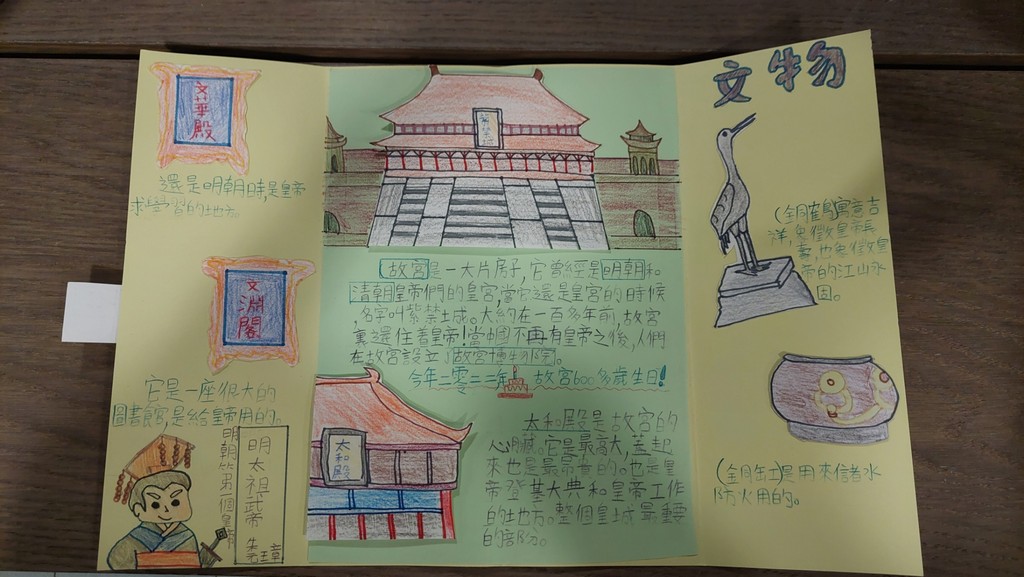 文華殿
還是明朝時,是皇帝
求學習的地方
文淵閣
它是一座很大的
圖書館,是給皇帝用的。
明朝第一個皇帝
明太祖武帝
朱
章
紫禁城
故宮是一大片房子,它曾經是明朝和
清朝皇帝們的皇宮,當它還是皇宮的時候,
名字叫紫禁城。大約在一百多年前,故宮
裏還住着皇帝!當中國不再有皇帝之後,人們
在故宮設立「故宮博物院。
今年二零二二年 故宮600多歲生日!
太和殿
太和殿是故宮的
心臟。它是最高大,蓋起
來也是最昂貴的。也是皇
帝登基大典和皇帝工作
的地方。整個皇城最重要
的部份。
文物
(銅鶴)寓意吉
洋,象徵皇帝長
壽,也象徵皇
帝的江山永
固。
(銅缸)是用來儲水
防火用的。